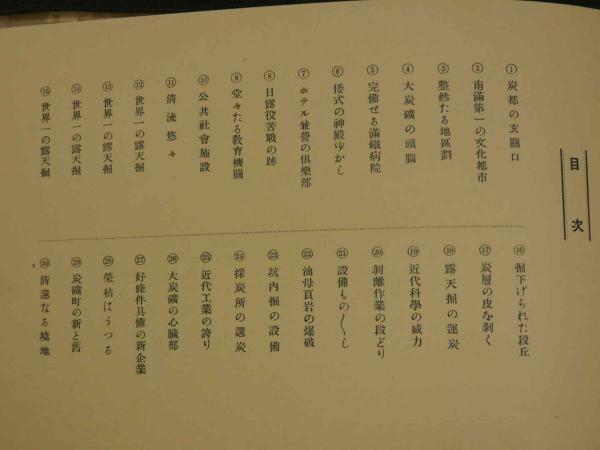 目次
① 炭都の玄關口
② 南滿第一の文化都市
③ 整然たる地區劃
④ 大炭礦の頭腦
⑤ 完備せる滿鐵病院
⑥ 倭式の神殿ゆかし
⑦ ホテル兼營の俱樂部
⑧ 日露役苦戰の跡
⑨ 堂々たる敎育機關
⑩ 公共社會施設
⑪ 淸流悠々
⑫ 世界一の露天掘
⑬ 世界一の露天掘
⑭ 世界一の露天掘
⑮ 世界一の露天掘
⑯ 掘下げられた段丘
⑰ 炭層の皮を剝く
⑱ 露天掘の運炭
⑲ 近代科學の威力
⑳ 剝離作業の段どり
㉑ 設備もの〱し
㉒ 油母頁岩の爆破
㉓ 坑內掘の設備
㉔ 採炭所の選炭
㉕ 近代工業の誇り
㉖ 大炭礦の心臟部
㉗ 好條件具備の新企業
㉘ 榮枯はうつる
㉙ 炭礦町の新と舊
㉚ 淸遠なる境地